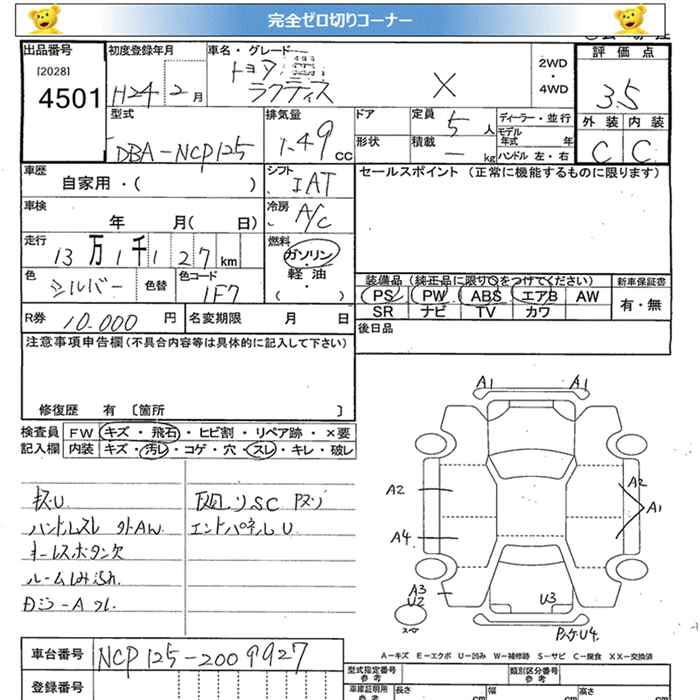 完全ゼロ切りコーナー
出品番号
[2028]
4501
初度登録年月
H24 2 月
車名・グレード
トヨタ
ラクティス
X
2WD
・
4WD
評価点
3.5
外装 内装
C C
型式
DBA-NCP125
排気量
1.49 cc
ドア
形状
定員 5 人
積載 ー kg
ディーラー・並行
モデル年式 年
ハンドル 左・右
車歴
自家用・( )
シフト
IAT
セールスポイント (正常に機能するものに限ります)
車検
年 月( 日)
冷房
A/C
走行
13万1千127 km
燃料
ガソリン
軽・油
( )
色
シルバー
色替
色コード
1F7
装備品 (純正品に限り○をつけてください)
PS PW ABS エアB AW
SR ナビ TV カワ
新車保証書
有・無
R券 10.000 円
名変期限 月 日
後日品
注意事項申告欄(不具合内容等は具体的に記入して下さい)
修復歴 有 〔箇所 〕
検査員
記入欄
FW キズ・飛石・ヒビ割・リペア跡・×要
内装 キズ・汚レ・コゲ・穴・スレ・キレ・破レ
ハンドルスレ
キーレスボタン欠
エンドパネルU
A1 A1
A2 A2
A1
A4
A3
U2
U3
スペア
A-キズ E-エクボ U-凹み W-補修跡 S-サビ C-腐食 XX-交換済
車台番号 NCP125-2009927
登録番号
型式指定番号
参考
類別区分番号
参考
車庫証明用
参考
長さ cm 幅 cm 高さ cm